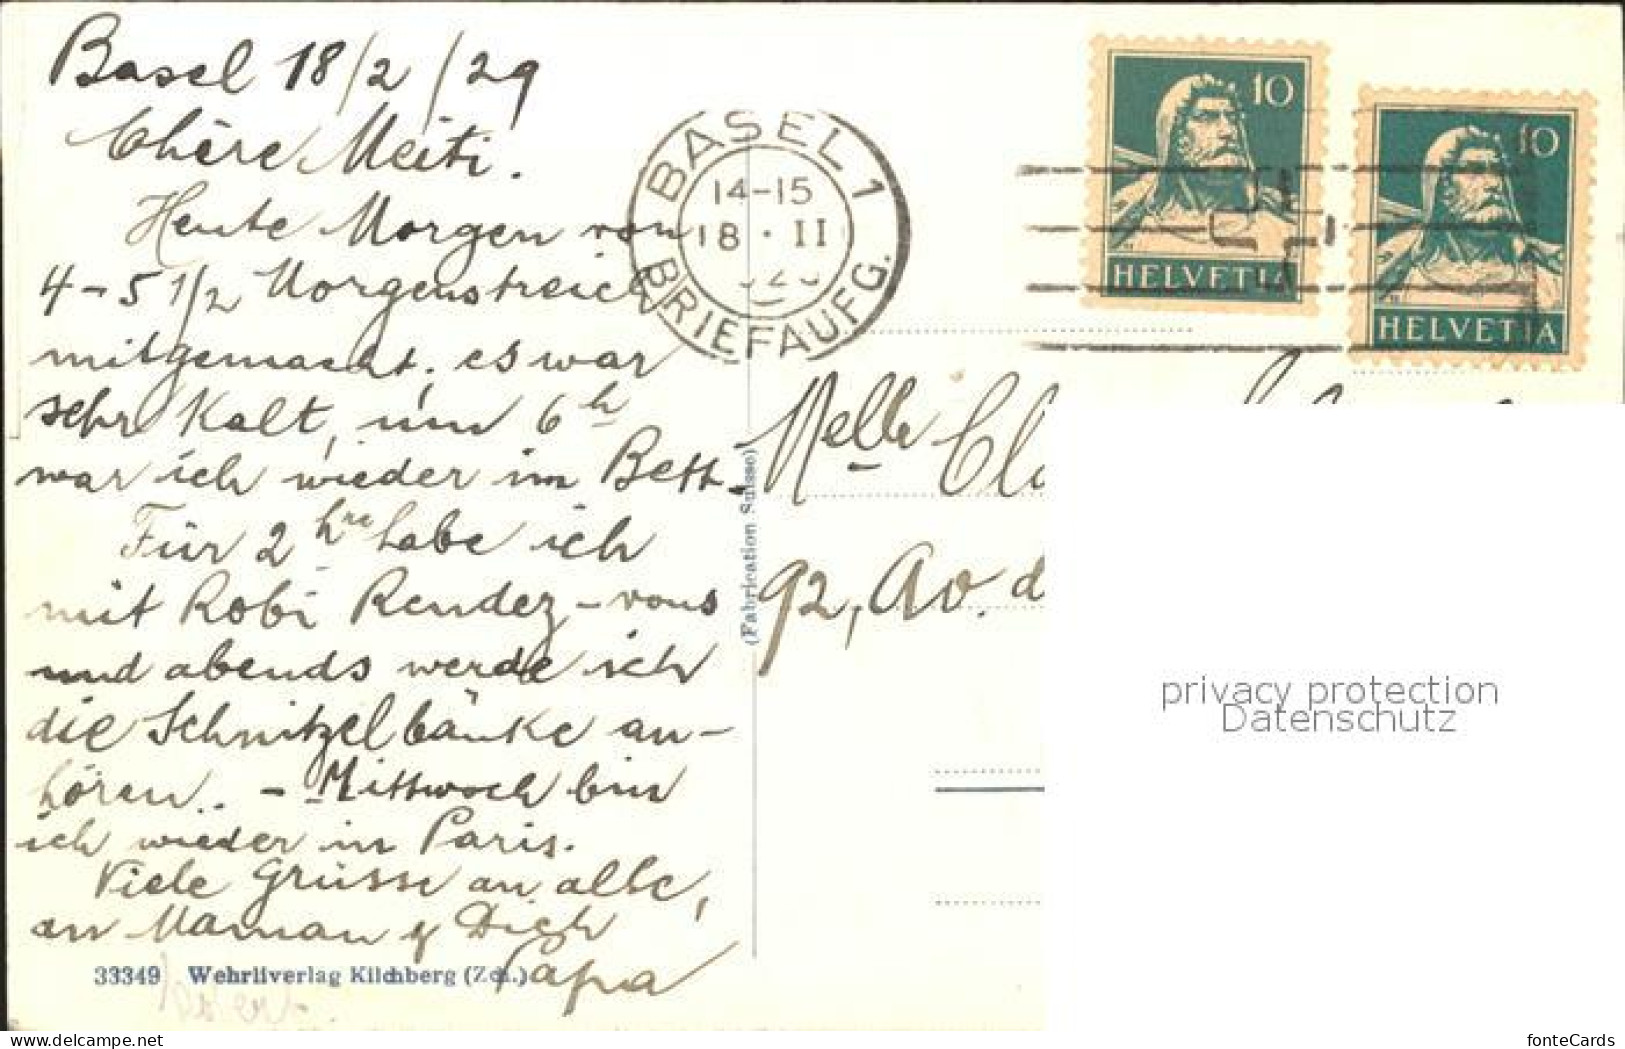 Basel 18/2/29
Chère Meiti.
Heute Morgen von
4-5 1/2 Morgenstreich
mitgemacht, es war
sehr kalt, um 6h
war ich wieder im Bett.
Für 2 hre habe ich
mit Robi Rendez-vous
und abends werde ich
die Schnitzelbänke an-
hören. - Mittwoch bin
ich wieder in Paris.
Viele Grüsse an alle,
an Maman & Dich
Papa
33349 Wehrliverlag Kilchberg (Zch.)
(Fabrication Suisse)
BASEL 1
14-15
18 · II
BRIEFAUFG.
10
HELVETIA
10
HELVETIA
Melle
92, Av. d
privacy protection
Datenschutz
www.delcampe.net
fonteCards